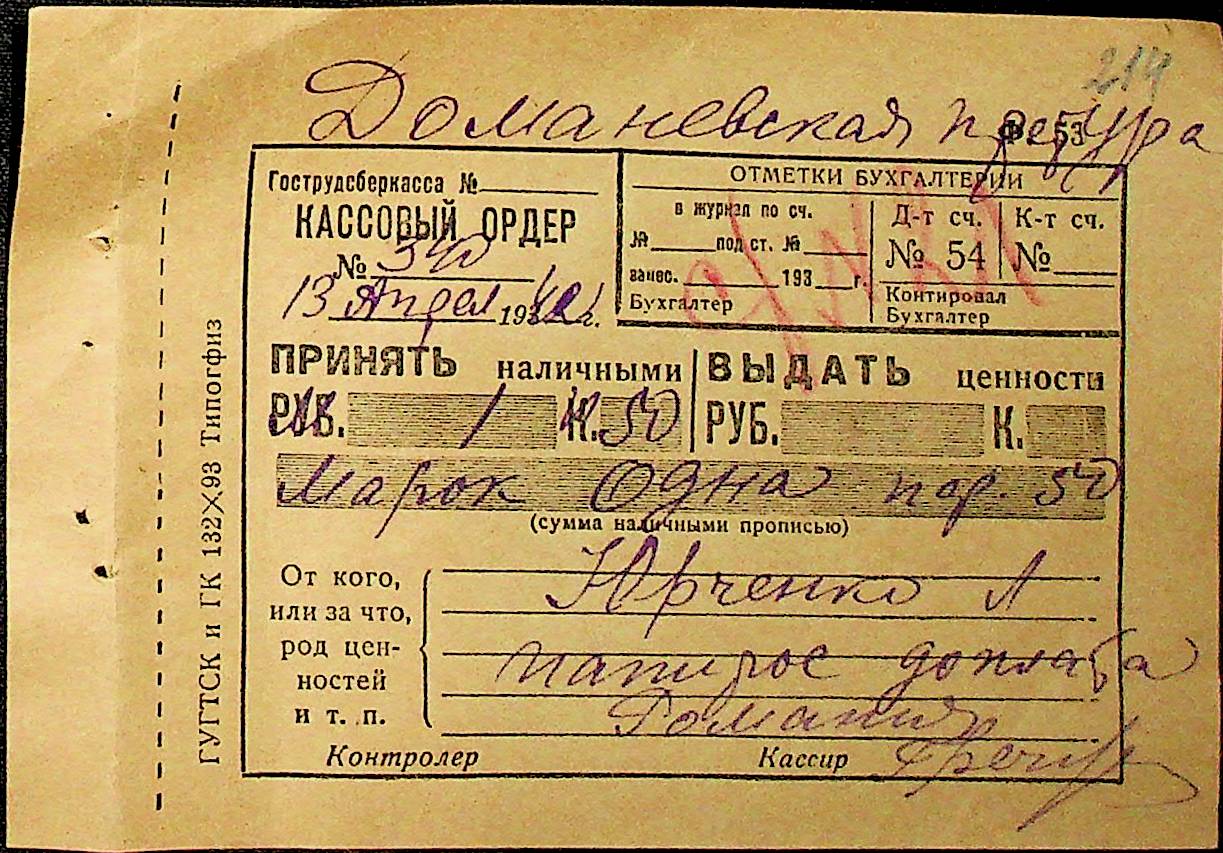 219
Доманевская претура
Ф. 53
Гострудсберкасса №
КАССОВЫЙ ОРДЕР
№ 340
13 Апрел 1942 г.
ОТМЕТКИ БУХГАЛТЕРИИ
в журнал по сч.
№ под ст. №
занес. 193 г.
Бухгалтер
Д-т сч.
№ 54
Контировал
Бухгалтер
К-т сч.
№
ПРИНЯТЬ наличными
РУБ. 1 К. 50
ВЫДАТЬ ценности
РУБ. К.
Марок Одна пф. 50
(сумма наличными прописью)
От кого,
или за что,
род цен-
ностей
и т. п.
Юрченко Л
папирос
Романия
Контролер
Кассир
ГУГТСК и ГК 132X93 Типогфиз